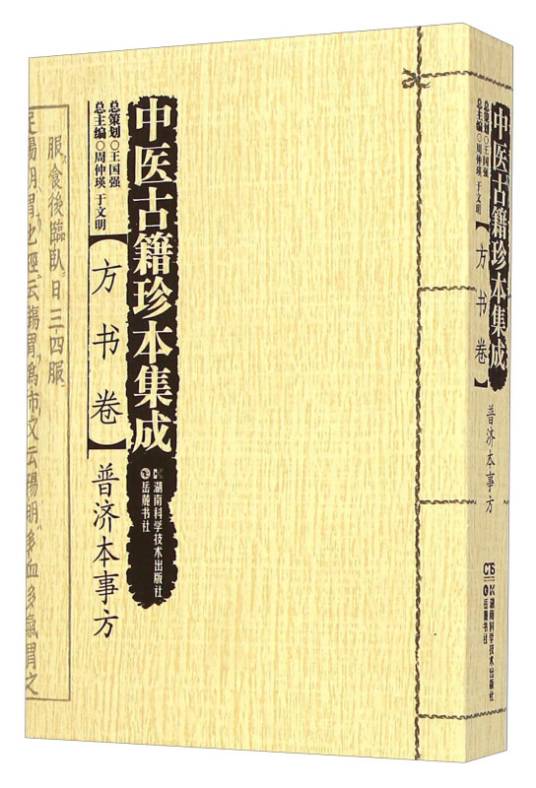 中医古籍珍本集成
总策划○王国强
总主编○周仲瑛 于文明
【方书卷】
普济本事方
湖南科学技术出版社
岳麓书社
服食後臨臥日三四服
足陽明胃之經云傷胃爲市文云陽明多血多氣胃之
中医古籍珍本集成
总策划○王国强
总主编○周仲瑛 于文明
【方书卷】
普济本事方
湖南科学技术出版社
岳麓书社